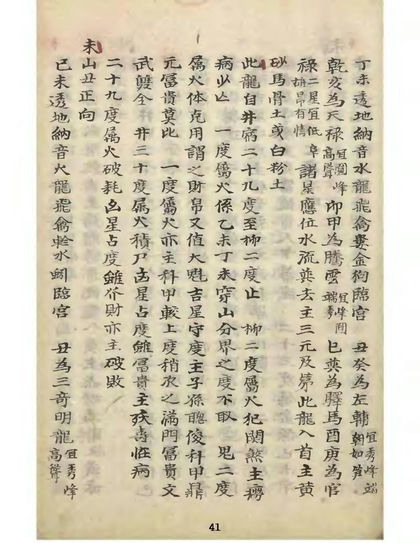 丁未透地納音水龍飛禽婁金狗臨宮 丑癸為左輔 宜秀峰端朝如笋
乾亥為天祿 宜圓峰高聳 卯甲為騰雲 宜峰圓端秀 巳巽為驛馬酉庚為官
祿 二星宜低胡昂有情 阜諸星應位水流巽去主三元及第此龍入首主黃
砂馬骨土或白粉土
此龍自井宿二十九度至柳二度止 柳二度屬火犯關煞主癆
病少亡 一度屬火係乙未丁未穿山分界之度不取 鬼二度
屬火体克用謂之財帛又值大魁吉星守度主子孫聰俊科甲鼎
元富貴莫比 一度屬火亦主科甲較上度稍次之滿門富貴文
武雙全 井三十度屬火積尸凶星占度雖富貴主殘害恠病
二十九度屬火破耗凶星占度雖介財亦主破敗
未山丑正向
己未透地納音火龍飛禽軫水蚓臨宮 丑為三奇明龍 宜秀峰高聳
41